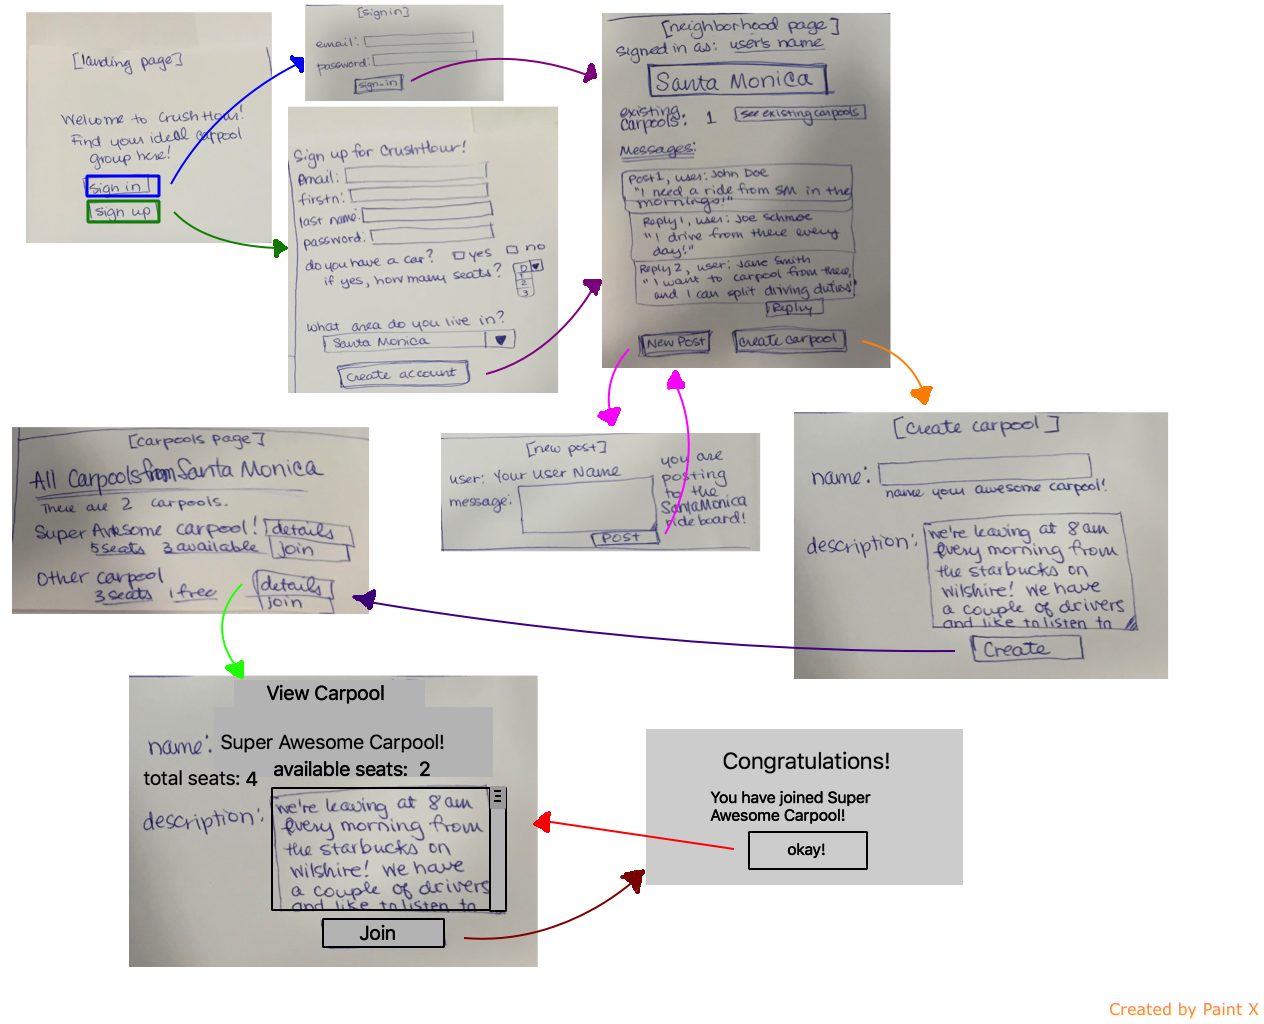 [landing page]
Welcome to CrushHour!
Find your ideal carpool
group here!
sign in
sign up
[sign in]
email:
password:
sign-in
Sign up for CrushHour!
email:
firstn:
last name:
password:
do you have a car? yes no
if yes, how many seats? 0
1
2
3
what area do you live in?
Santa Monica
create account
[neighborhood page]
signed in as: user's name
Santa Monica
existing
carpools: 1 see existing carpools
Messages:
Post 1, user: John Doe
"I need a ride from SM in the
mornings!"
Reply 1, user: Joe Schmoe
"I drive from there every
day!"
Reply 2, user: Jane Smith
"I want to carpool from there,
and I can split driving duties"
Reply
New Post create carpool
[carpools page]
All Carpools from Santa Monica
There are 2 carpools.
Super Awesome carpool! details
5 seats 3 available join
Other carpool details
3 seats 1 free join
[new post]
user: Your User Name
message:
you are
posting
to the
Santa Monica
rideboard!
POST
[create carpool]
name:
name your awesome carpool!
description: we're leaving at 8am
every morning from
the starbucks on
wilshire! we have
a couple of drivers
and like to listen to
Create
View Carpool
name: Super Awesome Carpool!
total seats: 4 available seats: 2
description: we're leaving at 8am
every morning from
the starbucks on
wilshire! we have
a couple of drivers
and like to listen to
Join
Congratulations!
You have joined Super
Awesome Carpool!
okay!
Created by Paint X